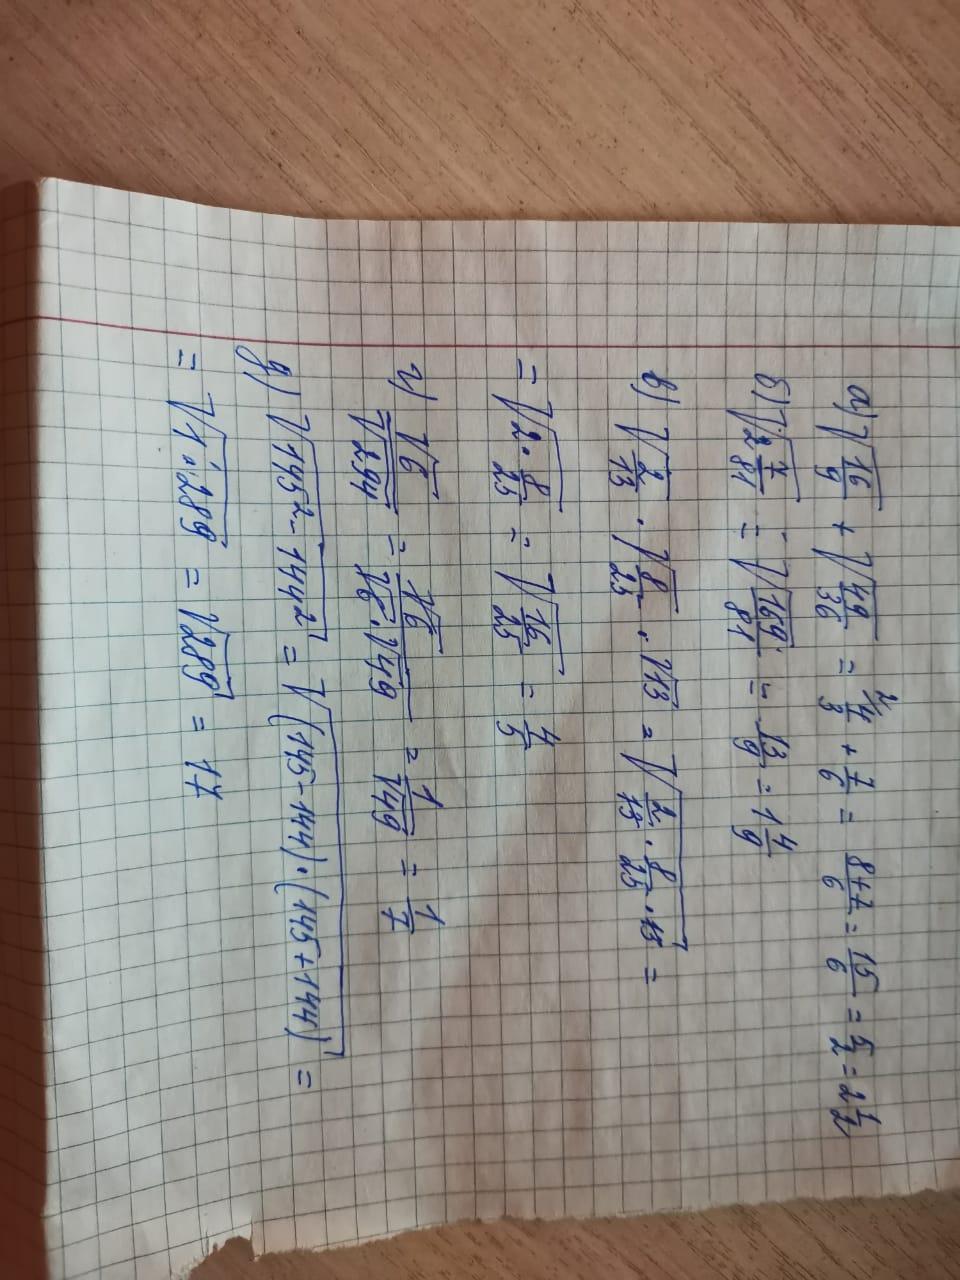 а) √16/9 + √49/36 = 2\4/3 + 7/6 = 8+7/6 = 15/6 = 5/2 = 2 1/2
б) √2 7/81 = √169/81 = 13/9 = 1 4/9
в) √2/13 · √8/25 · √13 = √2/13 · 8/25 · 13 =
= √2 · 8/25 = √16/25 = 4/5
г) √6/√294 = √6/√6·√49 = 1/√49 = 1/7
д) √145² - 144² = √(145-144)·(145+144) =
= √1·289 = √289 = 17